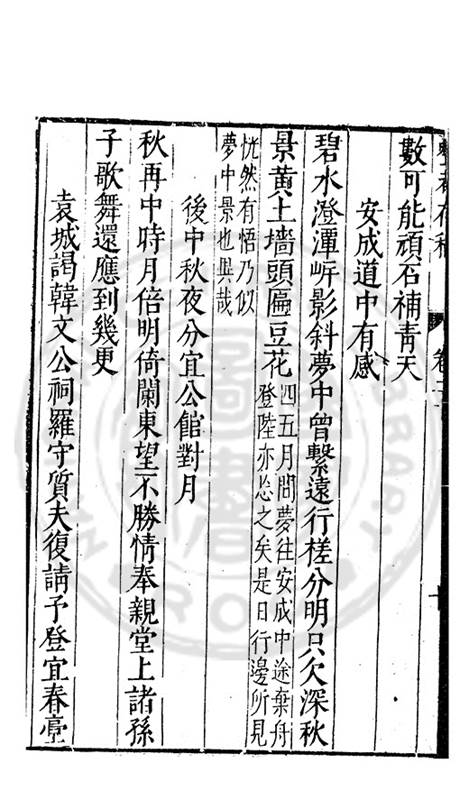 數可能頑石補青天
安成道中有感
碧水澄渾㟁影斜夢中曾繫遠行槎分明只欠深秋
景黃土墻頭匾豆花四五月間夢往安成中途棄舟
登陸亦㤀之矣是日行邊所見
恍然有悟乃似
夢中景也異哉
後中秋夜分宜公館對月
秋再中時月倍明倚闌東望不勝情奉親堂上諸孫
子歌舞還應到幾更
袁城謁韓文公祠羅守質夫復請予登宜春臺